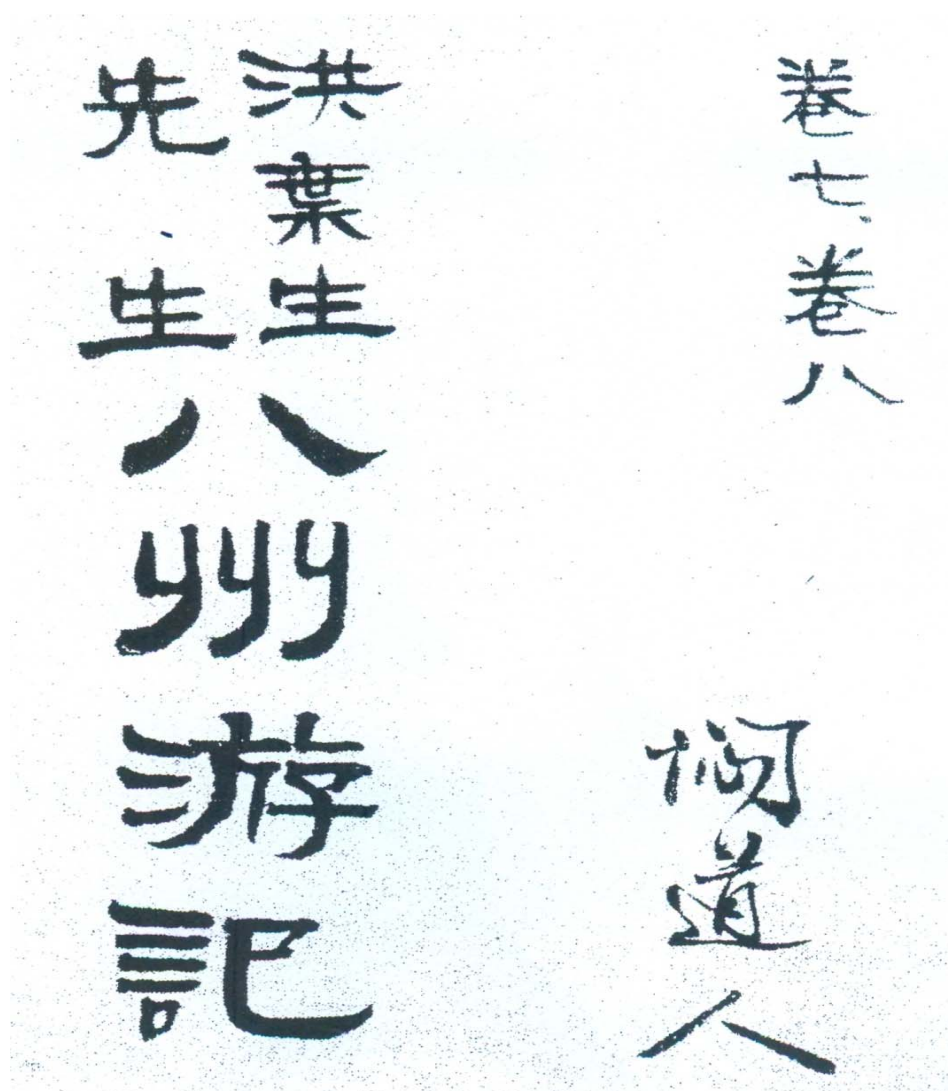 卷七、卷八
道人
洪棄生
先生
八州游記